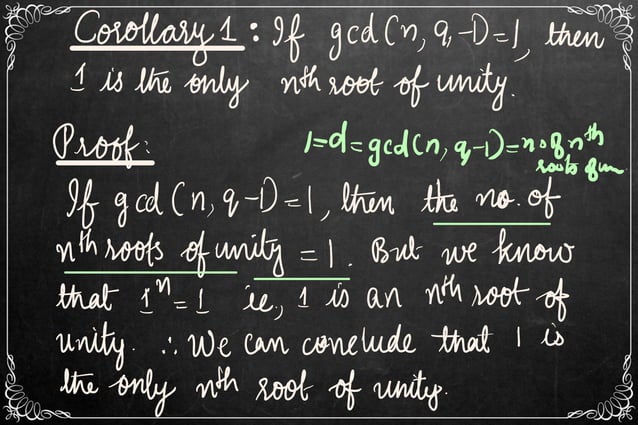 Corollary 1 : If gcd(n, q-1)=1, then
1 is the only nth root of unity.
Proof:
1=d=gcd(n, q-1)=no of nth
roots of un
If gcd(n, q-1)=1, then the no. of
nth roots of unity = 1. But we know
that 1ⁿ=1 ie., 1 is an nth root of
unity. ∴ We can conclude that 1 is
the only nth root of unity.